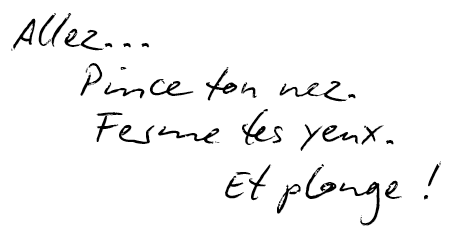 Allez...
Pince ton nez.
Ferme tes yeux.
Et plonge !